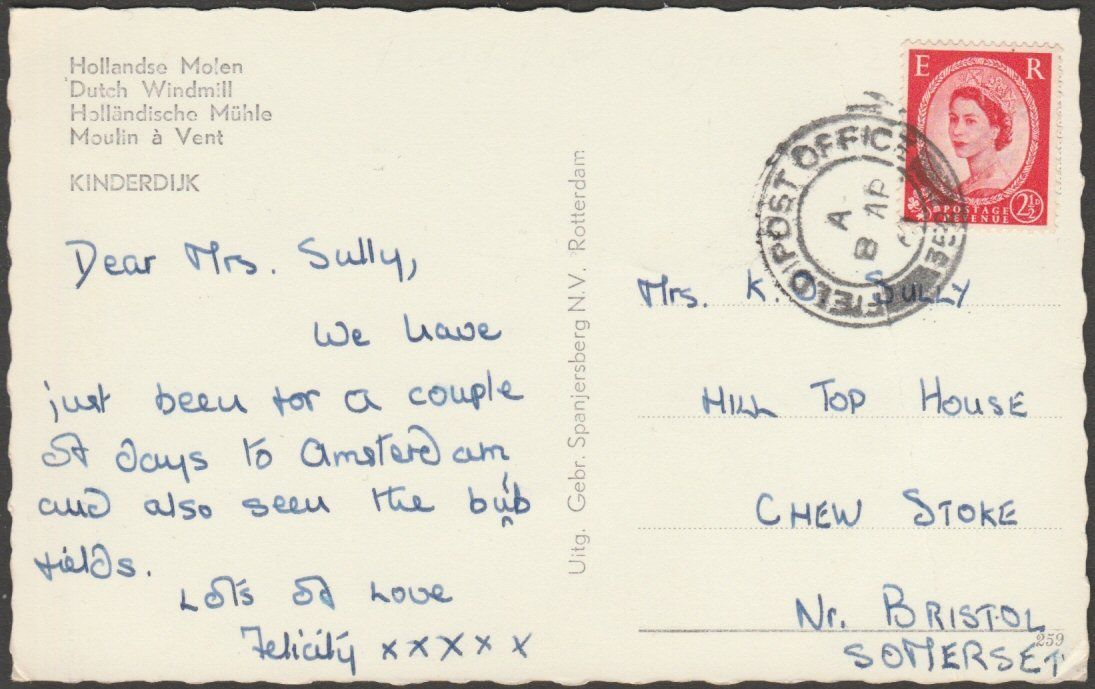 Hollandse Molen
Dutch Windmill
Holländische Mühle
Moulin à Vent
KINDERDIJK
Dear Mrs. Sully,
We have
just been for a couple
of days to Amsterdam
and also seen the bulb
fields.
Lots of Love
Felicity xxxxx
Uitg. Gebr. Spanjersberg N.V. Rotterdam
E R
POSTAGE
REVENUE
2½D
FIELD POST OFFICE
A
8 AP
Mrs. K. Sully
Hill Top House
Chew Stoke
Nr. Bristol
259
SOMERSET